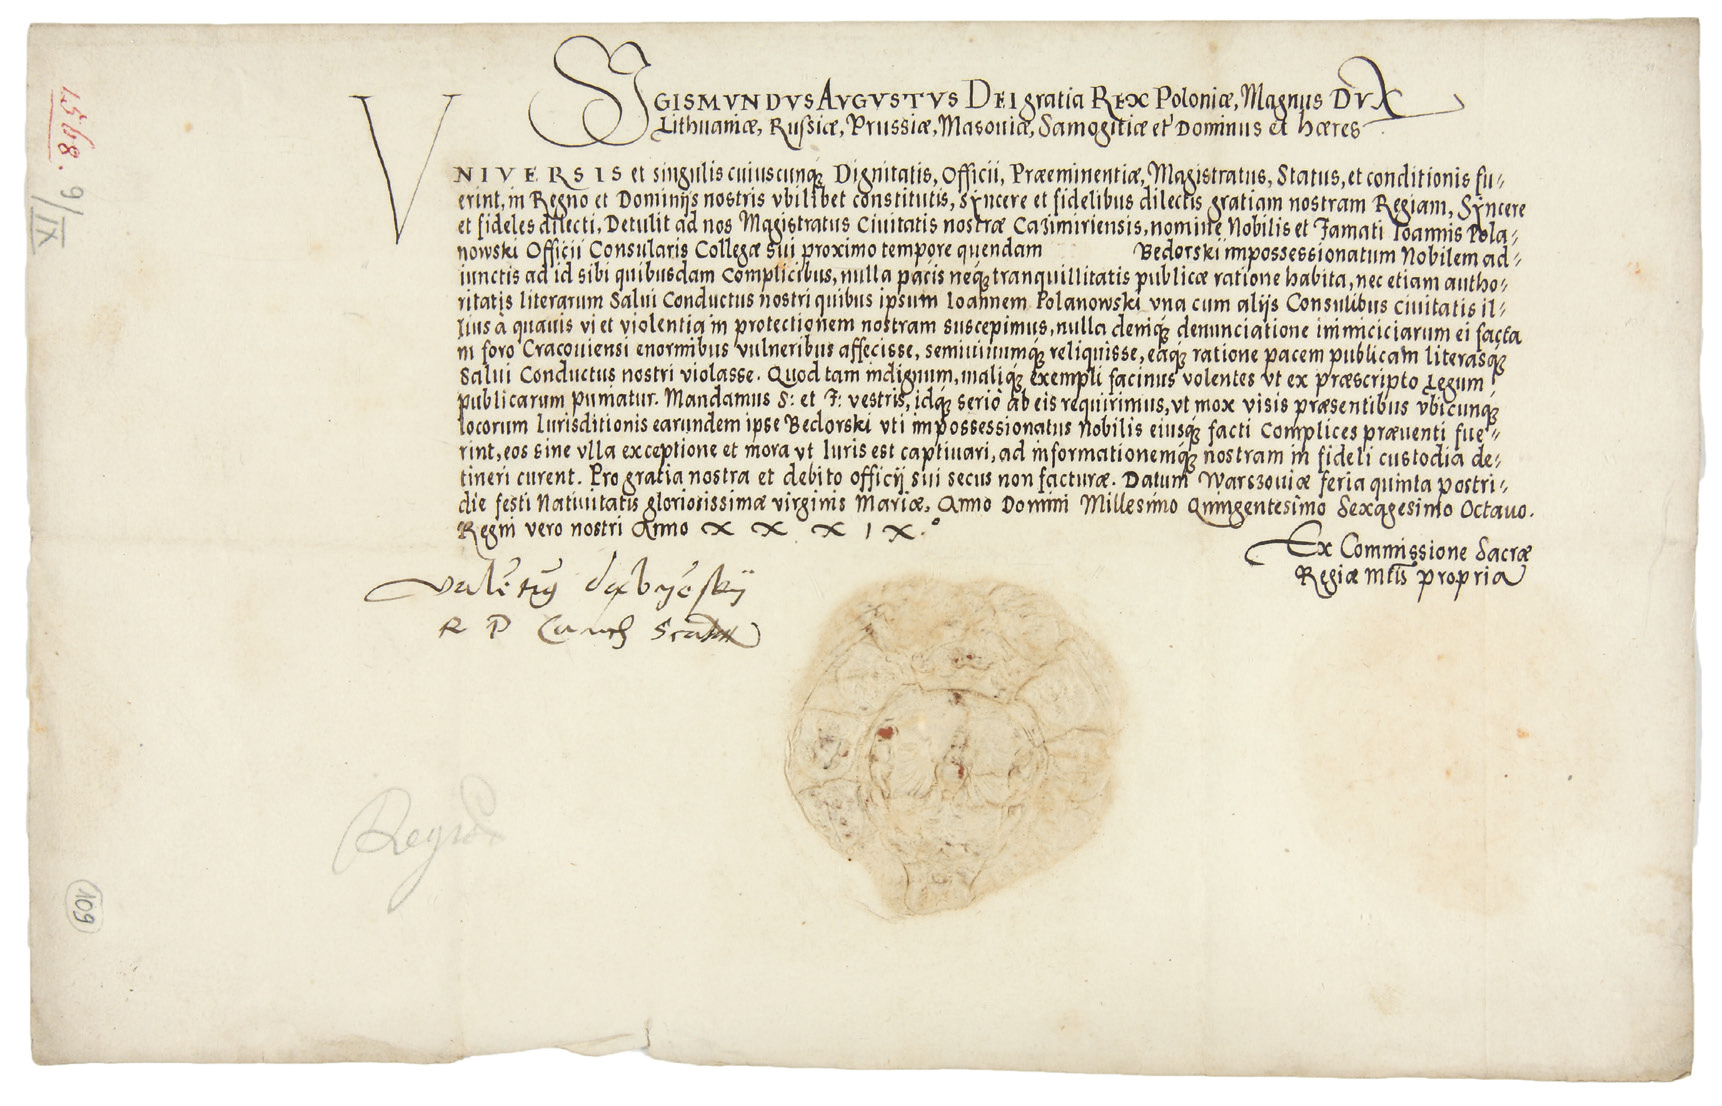 SIGISMVNDVS AVGVSTVS DEI gratia REX Poloniæ, Magnus DVX
Lithuaniæ, Russiæ, Prussiæ, Masouiæ, Samogitiæ et Dominus et hæres
VNIVERSIS et singulis cuiuscunq; Dignitatis, Officii, Præeminentiæ, Magistratus, Status, et conditionis fu-
erint, in Regno et Dominijs nostris vbilibet constitutis, Syncere et fidelibus dilectis gratiam nostram Regiam, Syncere
et fideles dilecti, Detulit ad nos Magistratus Ciuitatis nostræ Casimiriensis, nomine Nobilis et Famati Ioannis Pola-
nowski Officii Consularis Collegæ sui proximo tempore quendam Bedorski impossessionatum Nobilem ad-
iunctis ad id sibi quibusdam Complicibus, nulla pacis neq; tranquillitatis publicæ ratione habita, nec etiam autho-
ritatis literarum Salui Conductus nostri quibus ipsum Ioannem Polanowski vna cum alijs Consulibus Ciuitatis il-
lius à quauis vi et violentia in protectionem nostram suscepimus, nulla deniq; denunciatione inimiciciarum ei facta
in foro Cracouiensi enormibus vulneribus affecisse, semiuiuumq; reliquisse, eaq; ratione pacem publicam literasq;
Salui Conductus nostri violasse. Quod tam indignum, maliq; exempli facinus volentes vt ex præscripto Legum
publicarum puniatur. Mandamus S: et F: vestris, idq; seriò ab eis requirimus, vt mox visis præsentibus vbicunq;
locorum Iurisditionis earundem ipse Bedorski vti impossessionatus Nobilis eiusq; facti Complices præuenti fue-
rint, eos sine vlla exceptione et mora vt Iuris est captiuari, ad informationemq; nostram in fideli custodia de-
tineri curent. Pro gratia nostra et debito officij sui secus non facturæ. Datum Warszouiæ feria quinta postri-
die festi Natiuitatis gloriosissimæ virginis Mariæ, Anno Domini Millesimo Quingentesimo Sexagesimo Octauo.
Regni vero nostri Anno XXXIX.°
Ex Commissione Sacræ
Regiæ mtis propria
R P
1568.
9/IX
109